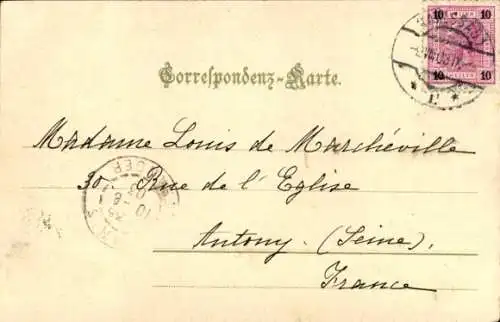 10 10
10 10
Correspondenz-Karte.
Madame Louis de Marchéville
30 Rue de l'Eglise
Antony. (Seine).
France